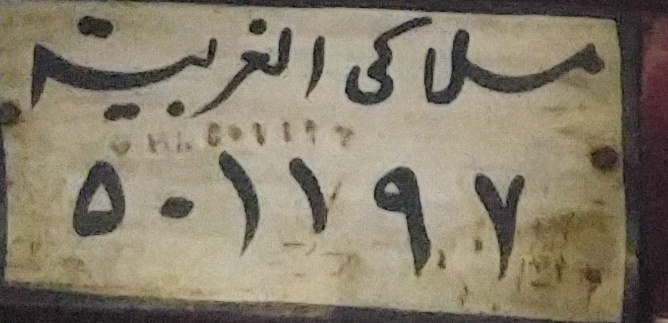 ملاكى الغربية
٥٠١١٩٧